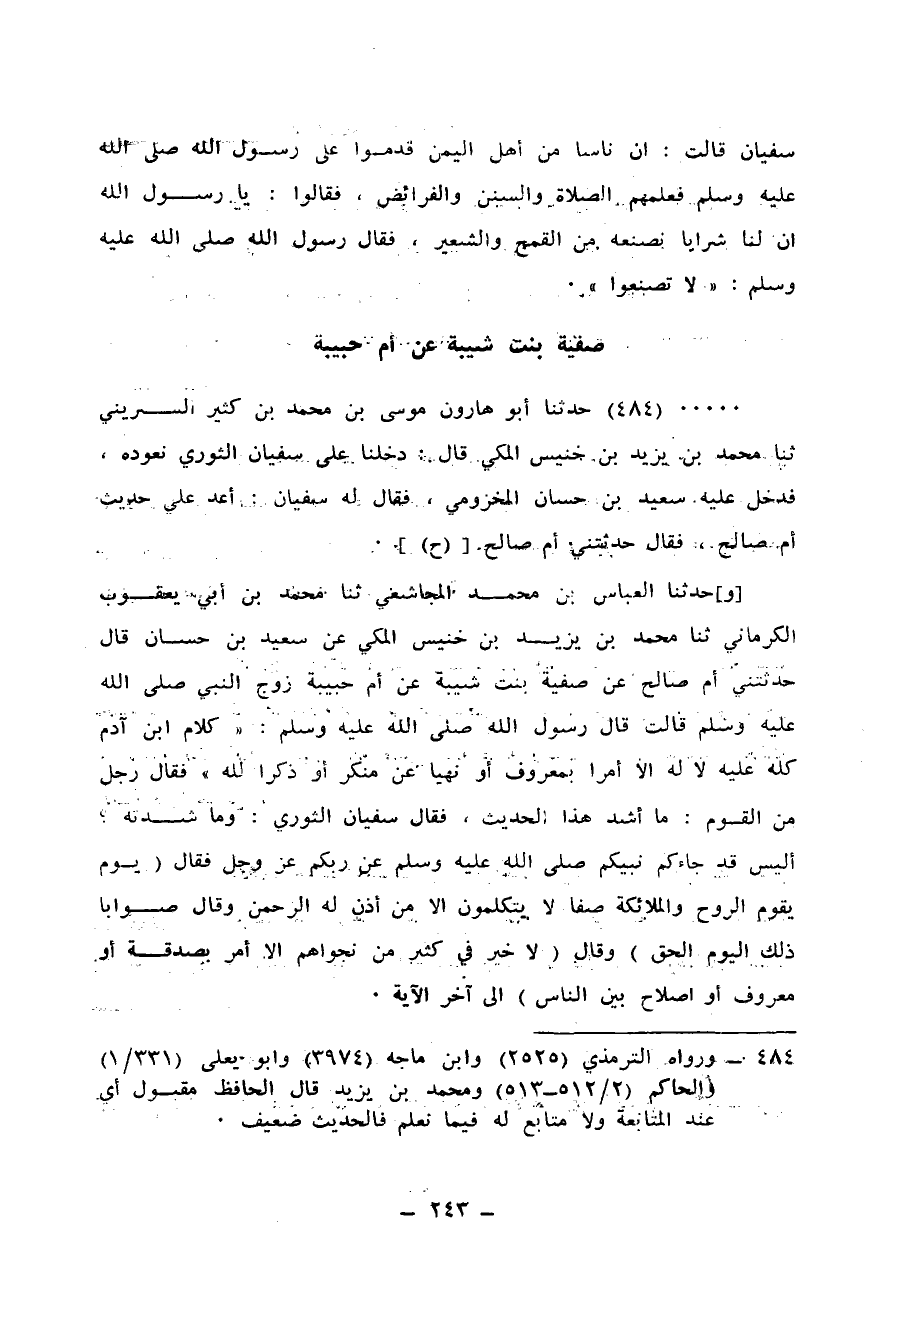 سفيان قالت : ان ناسا من أهل اليمن قدمـوا على رسـول الله صلى الله
عليه وسلم فعلمهم الصلاة والسنن والفرائض ، فقالوا : يا رســـول الله
ان لنا شرابا نصنعه من القمح والشعير ، فقال رسول الله صلى الله عليه
وسلم : « لا تصنعوا » ٠
صفية بنت شيبة عن أم حبيبة
٠٠٠٠٠ (٤٨٤) حدثنا أبو هارون موسى بن محمد بن كثير الســـريني
ثنا محمد بن يزيد بن خنيس المكي قال : دخلنا على سفيان الثوري نعوده ،
فدخل عليه سعيد بن حسان المخزومي ، فقال له سفيان : أعد علي حديث
أم صالح ، فقال حدثتني أم صالح [ (ح) ] ٠
[و]حدثنا العباس بن محمـــد المجاشعي ثنا محمد بن أبي يعقــوب
الكرماني ثنا محمد بن يزيـــد بن خنيس المكي عن سعيد بن حســان قال
حدثتني أم صالح عن صفية بنت شيبة عن أم حبيبة زوج النبي صلى الله
عليه وسلم قالت قال رسول الله صلى الله عليه وسلم : « كلام ابن آدم
كله عليه لا له الا أمرا بمعروف أو نهيا عن منكر أو ذكرا لله » فقال رجل
من القـوم : ما أشد هذا الحديث ، فقال سفيان الثوري : وما شـــدته ؟
أليس قد جاءكم نبيكم صلى الله عليه وسلم عن ربكم عز وجل فقال ( يـوم
يقوم الروح والملائكة صفا لا يتكلمون الا من أذن له الرحمن وقال صـوابا
ذلك اليوم الحق ) وقال ( لا خير في كثير من نجواهم الا أمر بصدقـــة أو
معروف أو اصلاح بين الناس ) الى آخر الآية ٠
٤٨٤ ــ ورواه الترمذي (٢٥٢٥) وابن ماجه (٣٩٧٤) وابو يعلى (٣٣١/١)
والحاكم (٥١٢/٢ــ٥١٣) ومحمد بن يزيد قال الحافظ مقبـول أي
عند المتابعة ولا متابع له فيما نعلم فالحديث ضعيف ٠
ــ ٢٤٣ ــ